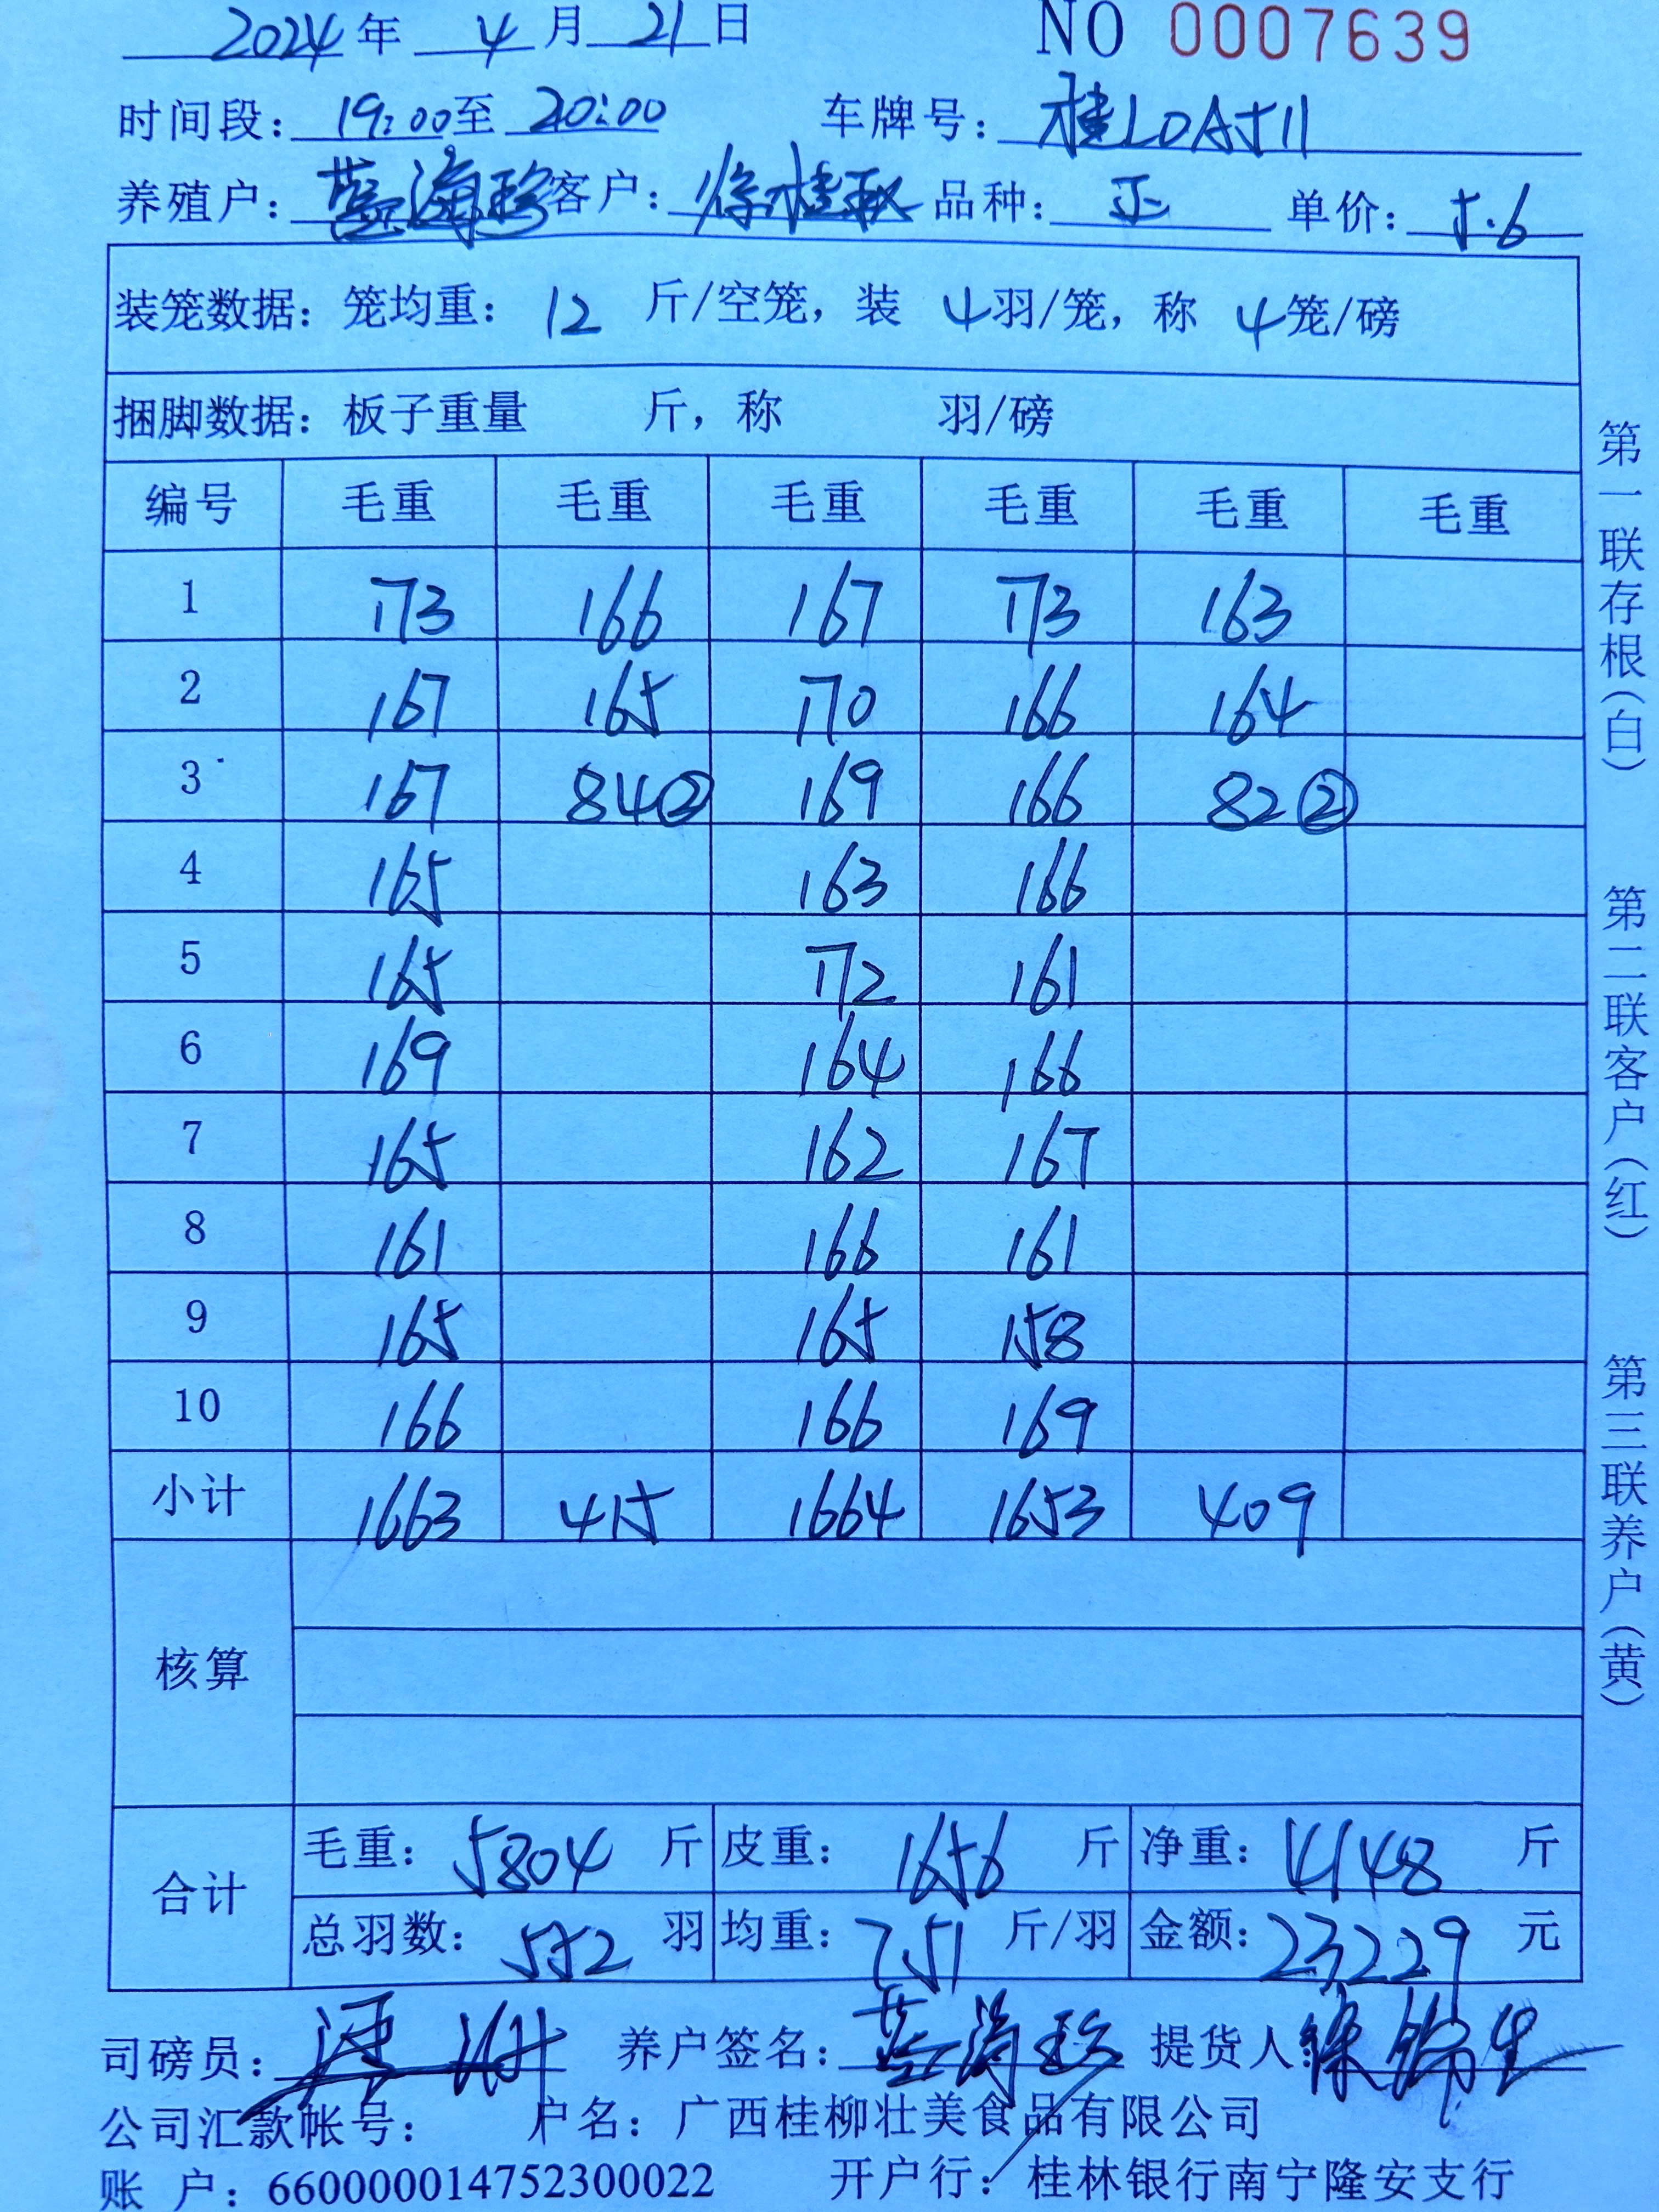 2024年 4月21日 NO 0007639
时间段：19:00至 20:00 车牌号：桂LDA511
养殖户：蓝海珍 客户：徐桂秋 品种：正 单价：5.6
装笼数据：笼均重：12 斤/空笼，装 4羽/笼，称 4笼/磅
捆脚数据：板子重量 斤，称 羽/磅
编号 毛重 毛重 毛重 毛重 毛重 毛重
1 173 166 167 173 163
2 167 165 170 166 164
3 167 84② 169 166 82②
4 165 163 166
5 165 172 161
6 169 164 166
7 165 162 167
8 161 166 161
9 165 165 158
10 166 166 169
小计 1663 415 1664 1653 409
核算
合计 毛重：5804 斤 皮重：1656 斤 净重：4148 斤
总羽数：552 羽 均重：7.51 斤/羽 金额：23229 元
司磅员： 养户签名：蓝海珍 提货人
公司汇款帐号： 户名：广西桂柳壮美食品有限公司
账 户：660000014752300022 开户行：桂林银行南宁隆安支行
第一联存根（白）
第二联客户（红）
第三联养户（黄）